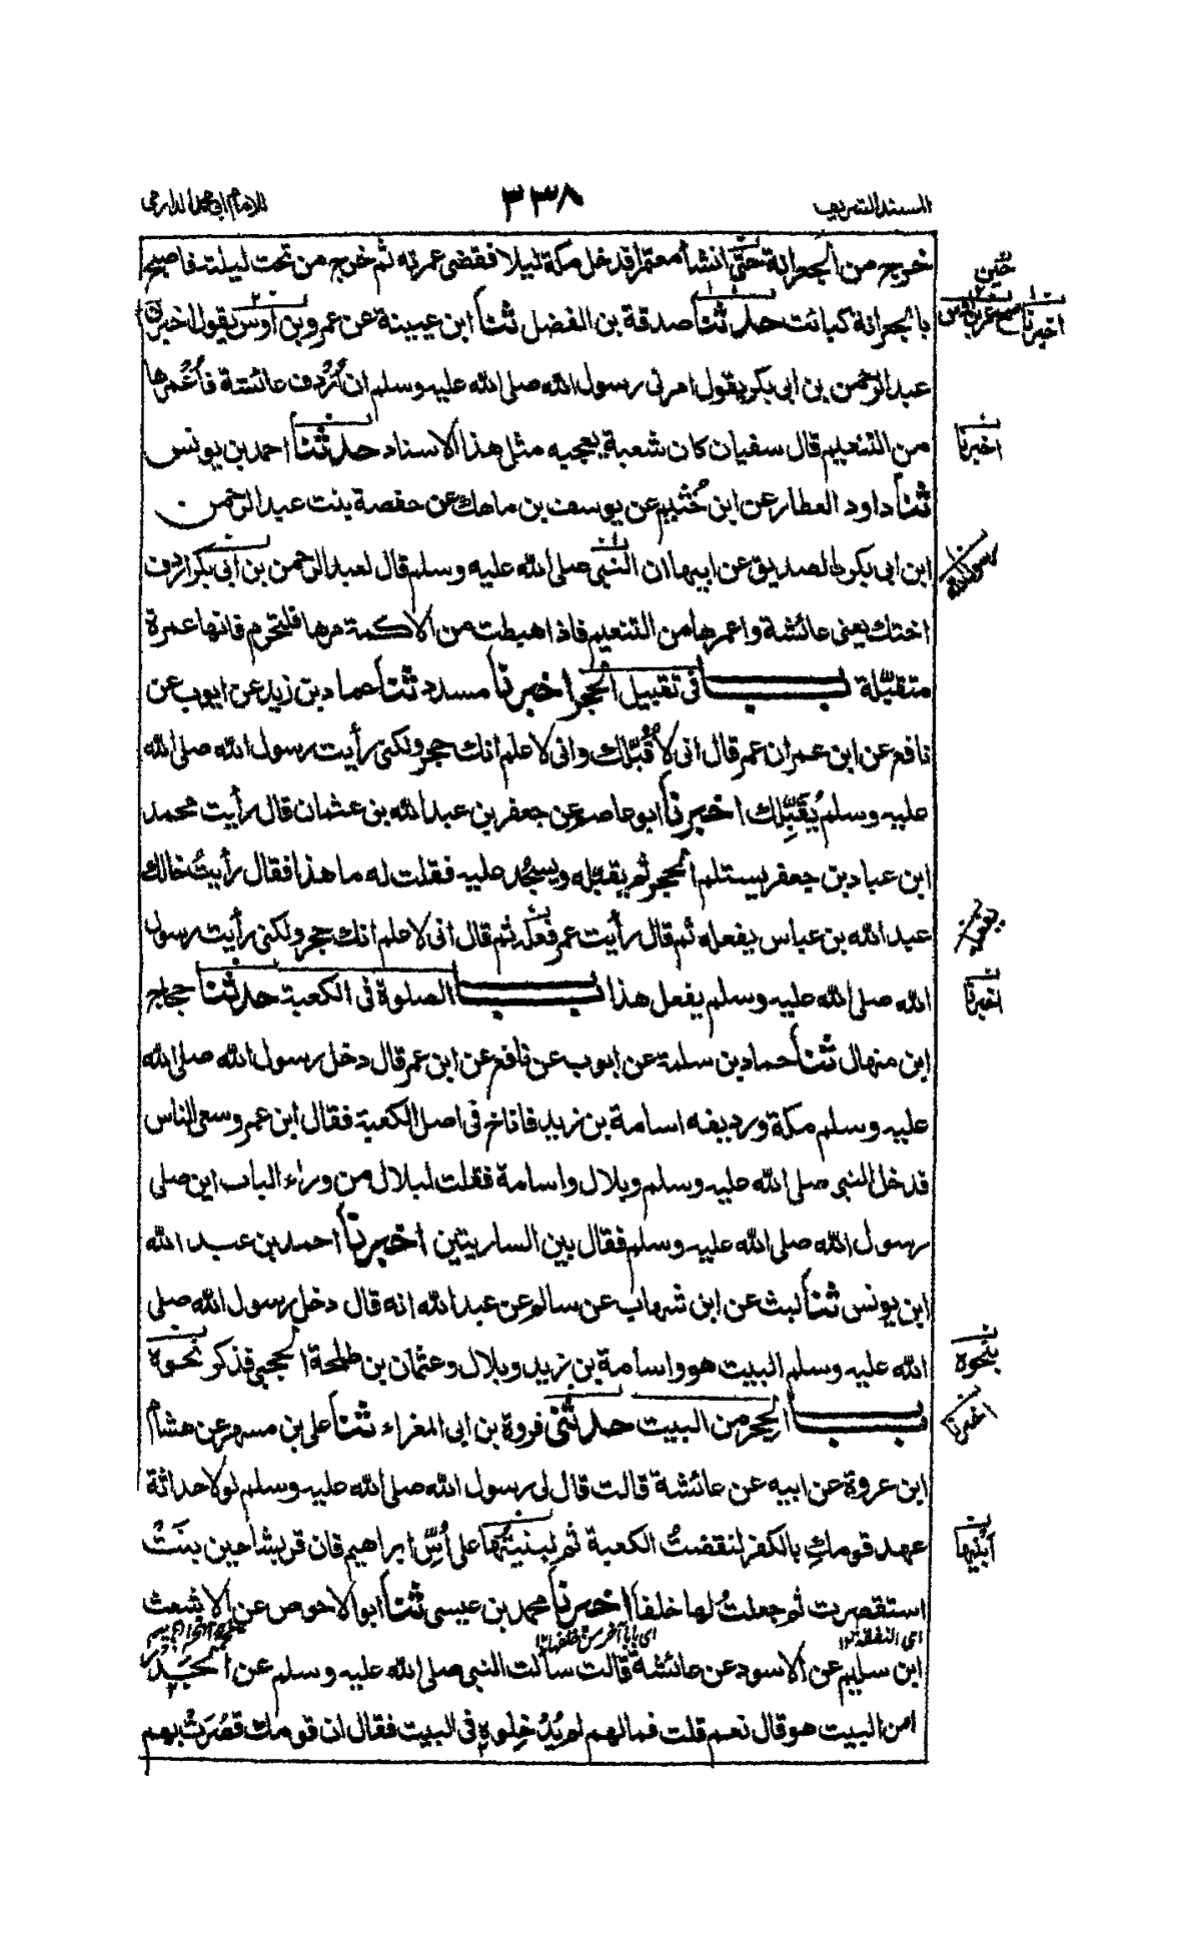 المسند الشريف ٣٣٨ للامام ابي محمد الدارمى
خرج من الجعرانة حتى انشأ معتمرا فدخل مكة ليلا فقضى عمرته ثم خرج من تحت ليلته فاصبح
حين
بالجعرانة كبائت حدثنا صدقة بن الفضل ثنا ابن عيينة عن عمرو بن اوس يقول اخبرنى
اخبرنا سمع عمرو بن اوس
عبد الرحمن بن ابى بكر يقول امرنى رسول الله صلى الله عليه وسلم ان اُرْدِف عائشة فاُعْمِرها
من التنعيم قال سفيان كان شعبة يعجبه مثل هذا الاسناد حدثنا احمد بن يونس
اخبرنا
ثنا داود العطار عن ابن خُثيم عن يوسف بن ماهك عن حفصة بنت عبد الرحمن
ابن ابى بكر الصديق عن ابيها ان النبى صلى الله عليه وسلم قال لعبد الرحمن بن ابى بكر اردف
رسول الله
اختك يعنى عائشة واعمرها من التنعيم فاذا هبطت من الاكمة مرها فلتحرم فانها عمرة
متقبّلة باب فى تقبيل الحجر اخبرنا مسدد ثنا حماد بن زيد عن ايوب عن
نافع عن ابن عمر ان عمر قال انى لاُقَبّلك وانى لاعلم انك حجر ولكنى رأيت رسول الله صلى الله
عليه وسلم يُقَبِّلك اخبرنا ابو عاصم عن جعفر بن عبد الله بن عثمان قال رأيت محمد
ابن عباد بن جعفر يستلم الحجر ثم يقبّله ويسجُد عليه فقلت له ما هذا فقال رأيتُ خالك
عبد الله بن عباس يفعله ثم قال رأيت عمر فعله ثم قال انى لاعلم انك حجر ولكنى رأيت رسول
يفعله
الله صلى الله عليه وسلم يفعل هذا باب الصلوة فى الكعبة حدثنا حجاج
اخبرنا
ابن منهال ثنا حماد بن سلمة عن ايوب عن نافع عن ابن عمر قال دخل رسول الله صلى الله
عليه وسلم مكة ورديفه اسامة بن زيد فاناخ فى اصل الكعبة فقال ابن عمر وسعى الناس
فدخل النبى صلى الله عليه وسلم وبلال واسامة فقلت لبلال من وراء الباب اين صلى
رسول الله صلى الله عليه وسلم فقال بين الساريتين اخبرنا احمد بن عبد الله
ابن يونس ثنا ليث عن ابن شهاب عن سالم عن عبد الله انه قال دخل رسول الله صلى
الله عليه وسلم البيت هو واسامة بن زيد وبلال وعثمان بن طلحة الحجبى فذكر نحوه
بنحوه
باب الحِجر من البيت حدثنى فروة بن ابى المغراء ثنا على بن مسهر عن هشام
اخبرنا
ابن عروة عن ابيه عن عائشة قالت قال لى رسول الله صلى الله عليه وسلم لولا حداثة
عهد قومكِ بالكفر لنقضتُ الكعبة ثم لبنيتُها على اُسّ ابراهيم فان قريشا حين بنَتْ
أبنيها
استقصرت ثم جعلتُ لها خلفا اخبرنا محمد بن عيسى ثنا ابو الاحوص عن الاشعث
اى النفقة ١٢ اى بابا آخر من خلفها ١٢
ابن سليم عن الاسود عن عائشة قالت سألت النبى صلى الله عليه وسلم عن الجَدْر
امن البيت هو قال نعم قلت فمالهم لم يُدْخِلوه فى البيت فقال ان قومك قصُرَتْ بهم